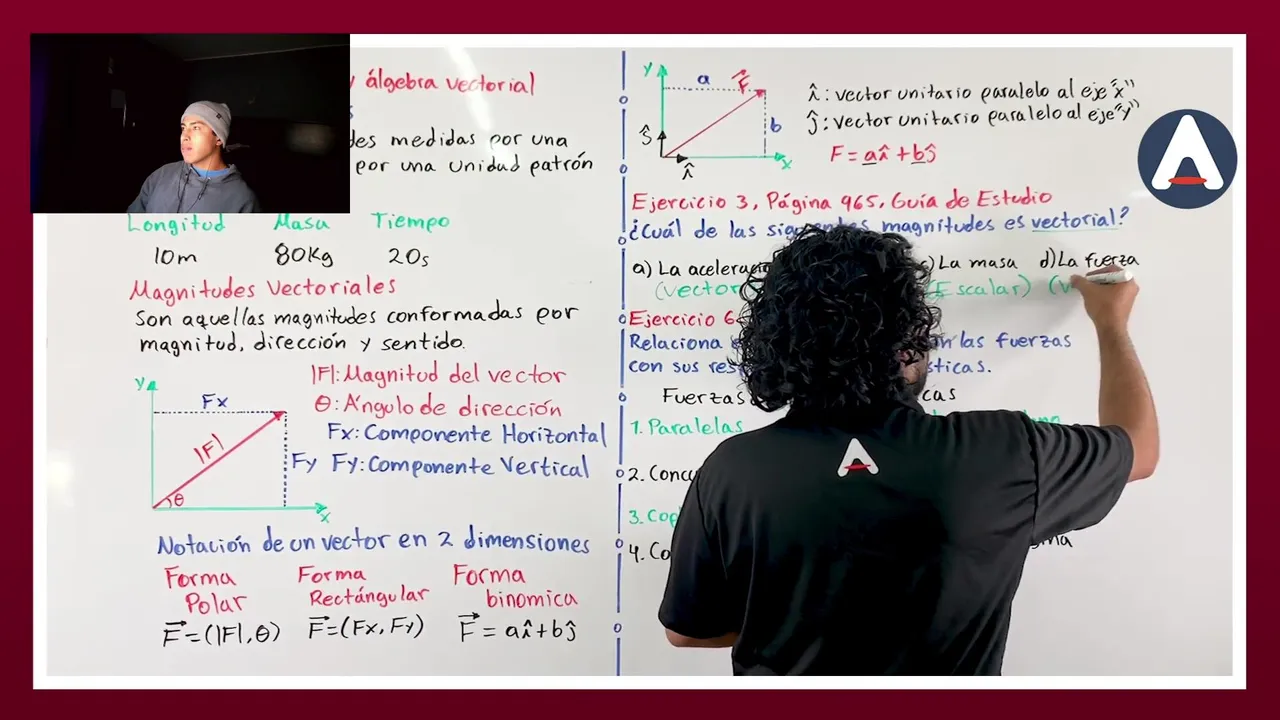 y álgebra vectorial
des medidas por una
por una unidad patrón
Longitud Masa Tiempo
10m 80Kg 20s
Magnitudes Vectoriales
Son aquellas magnitudes conformadas por
magnitud, dirección y sentido.
y
Fx
|F|
θ
Fy
x
|F|: Magnitud del vector
θ: Ángulo de dirección
Fx: Componente Horizontal
Fy: Componente Vertical
Notación de un vector en 2 dimensiones
Forma Polar
Forma Rectángular
Forma binomica
F⃗=(|F|,θ) F⃗=(Fx,Fy) F⃗ = aî+bĵ
y
a
F⃗
b
ĵ
î
x
î: vector unitario paralelo al eje "x"
ĵ: vector unitario paralelo al eje "y"
F = aî+bĵ
Ejercicio 3, Página 965, Guía de Estudio
¿Cuál de las siguientes magnitudes es vectorial?
a) La acelerac c) La masa d) La fuerza
(vector (Escalar) (v
Ejercicio 6
Relaciona las fuerzas
con sus res sticas.
Fuerzas cas
1. Paralelas
2. Conc
3. Cop
4. Co
A
A